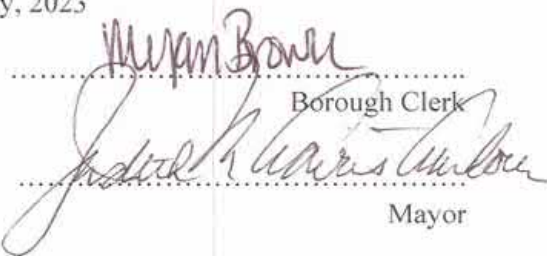 y, 2023
Megan Brown
Borough Clerk
Judith
Mayor